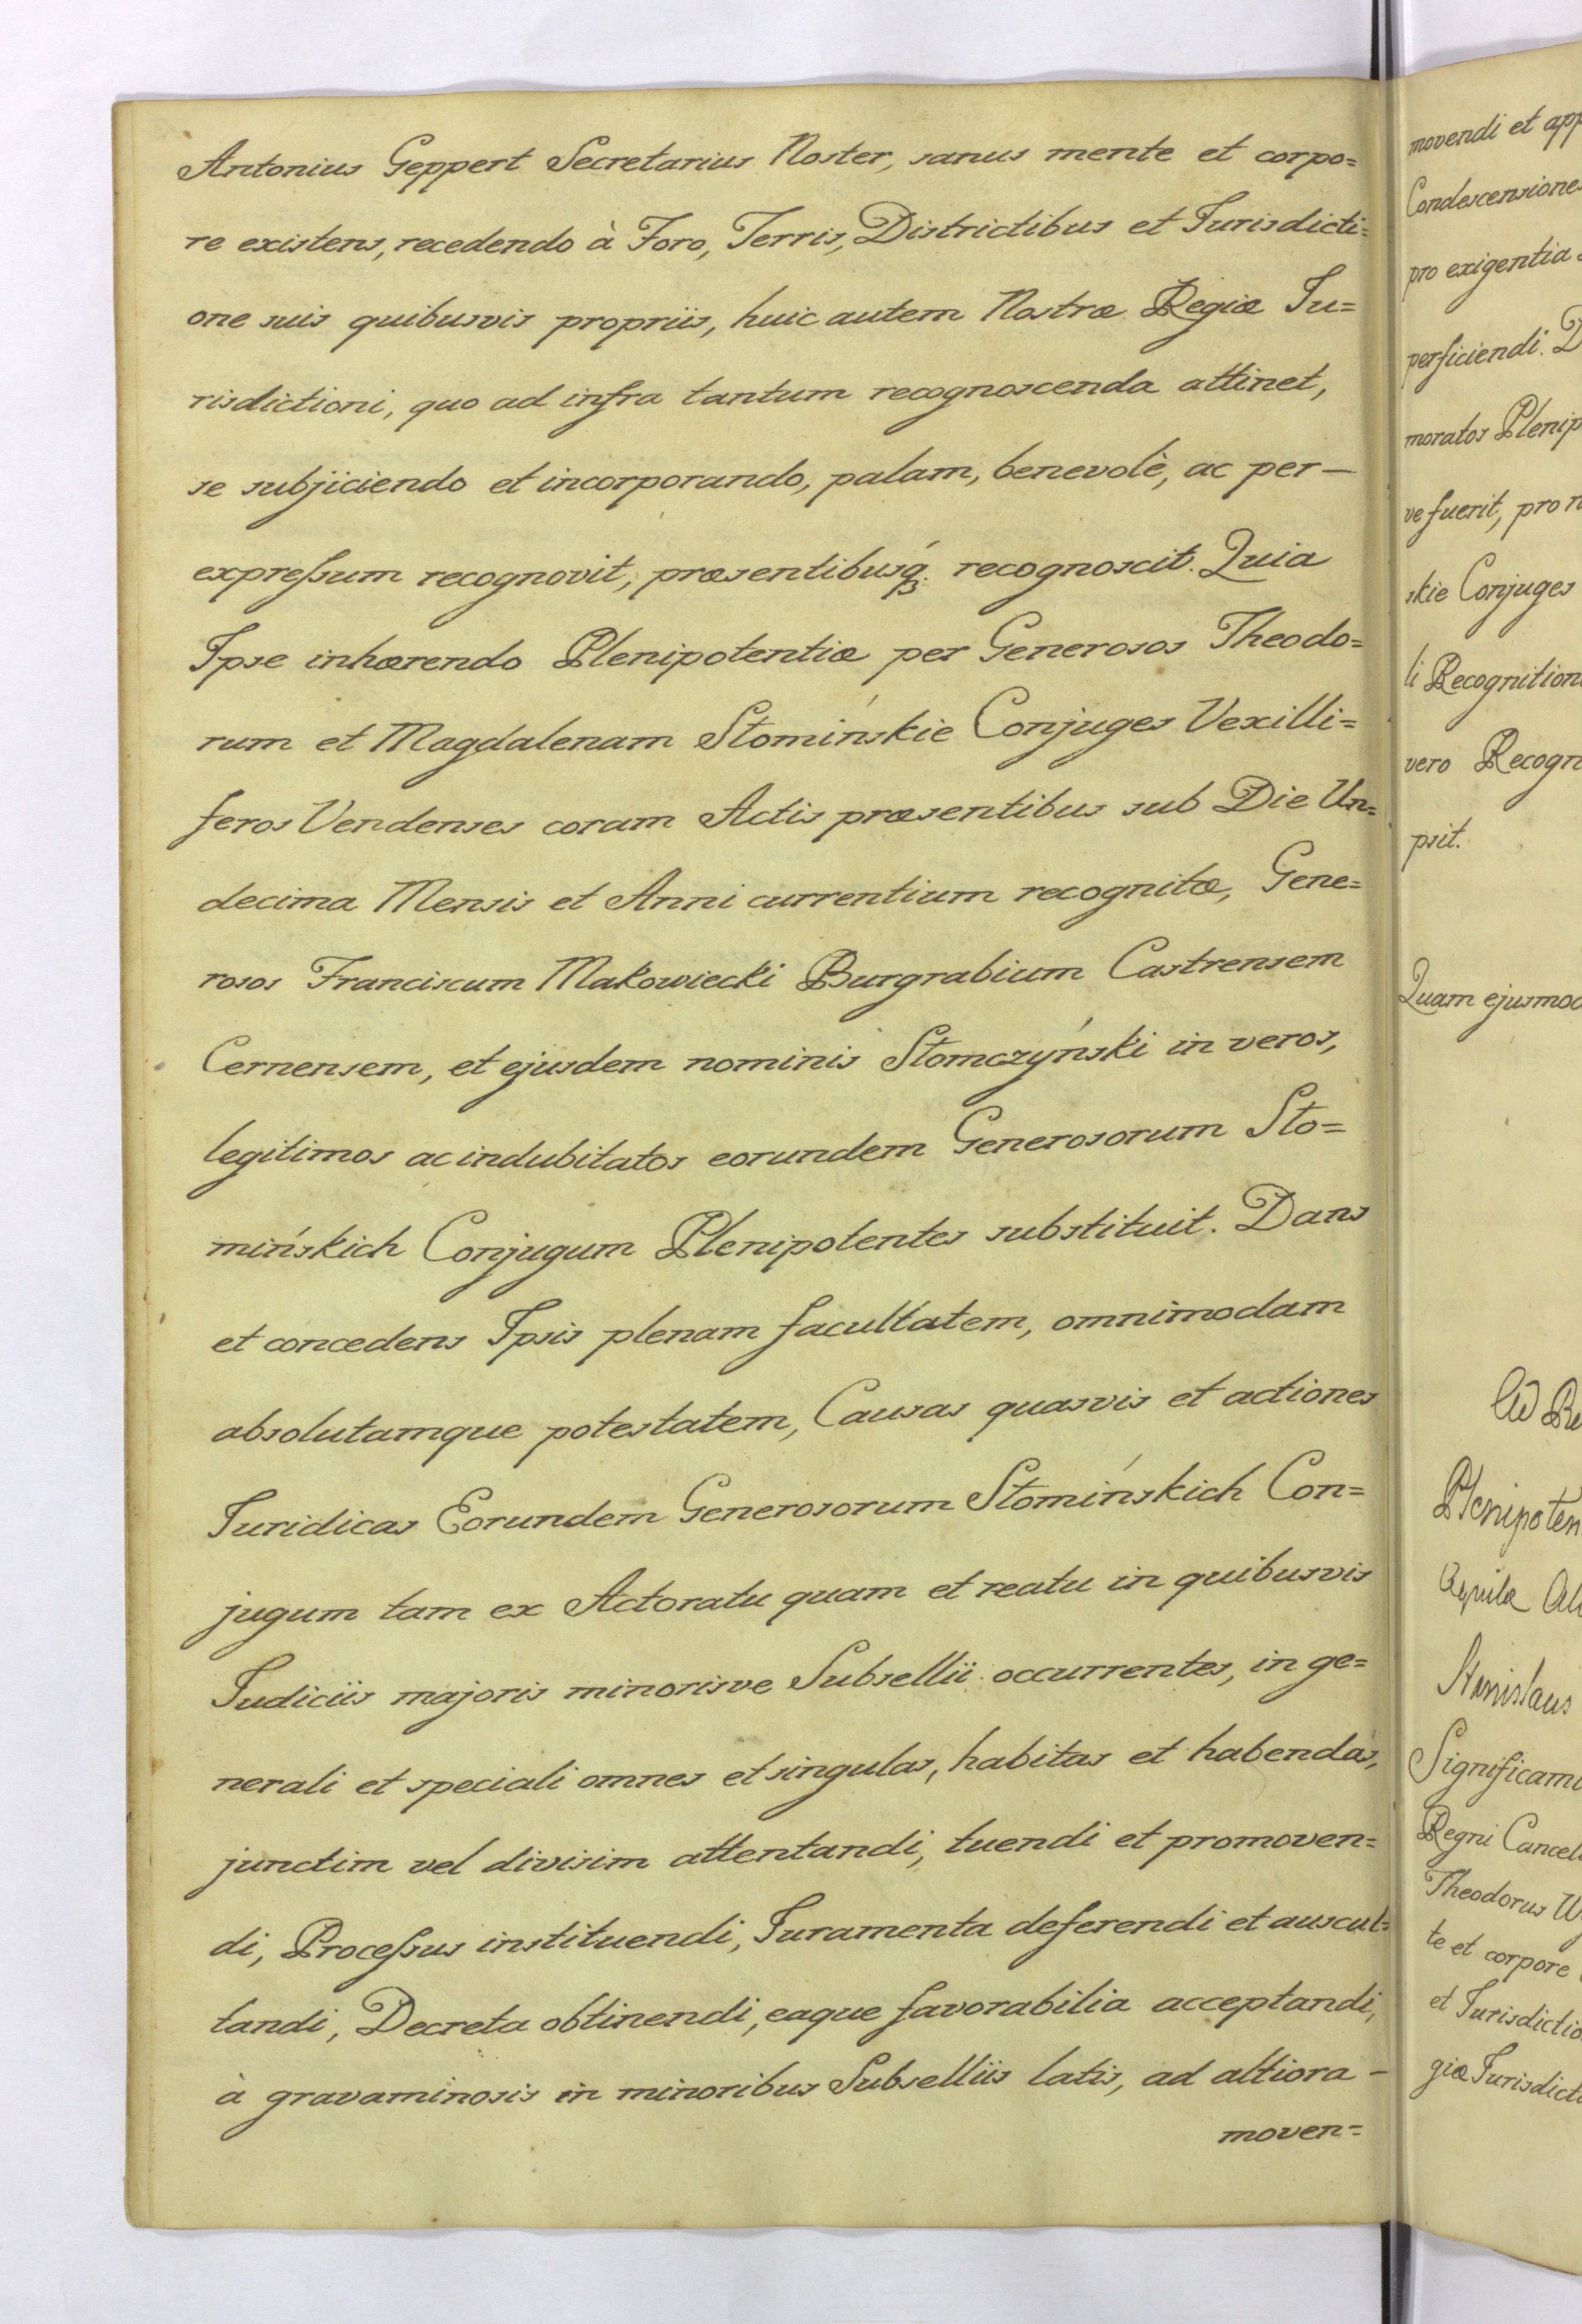 Antonius Geppert Secretarius Noster, sanus mente et corpo=
re existens, recedendo à Foro, Terris, Districtibus et Jurisdicti=
one suis quibusvis propriis, huic autem Nostræ Regiæ Ju=
risdictioni, quo ad infra tantum recognoscenda attinet,
se subjiciendo et incorporando, palam, benevolè, ac per—
expreſsum recognovit, præsentibusq́ꝫ recognoscit. Quia
Ipse inhærendo Plenipotentiæ per Generosos Theodo=
rum et Magdalenam Słomińskie Conjuges Vexilli=
feros Vendenses coram Actis præsentibus sub Die Un=
decima Mensis et Anni currentium recognitæ, Gene=
rosos Franciscum Makowiecki Burgrabium Castrensem
Cernensem, et ejusdem nominis Słomczyński in veros,
legitimos ac indubitatos eorundem Generosorum Sło=
mińskich Conjugum Plenipotentes substituit. Dans
et concedens Ipsis plenam facultatem, omnimodam
absolutamque potestatem, Causas quasvis et actiones
Juridicas Eorundem Generosorum Słomińskich Con=
jugum tam ex Actoratu quam et reatu in quibusvis
Judiciis majoris minorisve Subsellii occurrentes, in ge=
nerali et speciali omnes et singulas, habitas et habendas,
junctim vel divisim attentandi, tuendi et promoven=
di, Proceſsus instituendi, Juramenta deferendi et auscul=
tandi, Decreta obtinendi, eaque favorabilia acceptandi,
à gravaminosis in minoribus Subselliis latis, ad altiora —
moven=
movendi et app
Condescensiones
pro exigentia
perficiendi. D
moratos Plenip
ve fuerit, pro
skie Conjuges
li Recognition
vero Recogn
psit.
Quam ejusmod
Ad Re
Plenipoten
Stanislaus
Significam
Regni Cancel
Theodorus
te et corpore
et Jurisdictio
giæ Jurisdicti